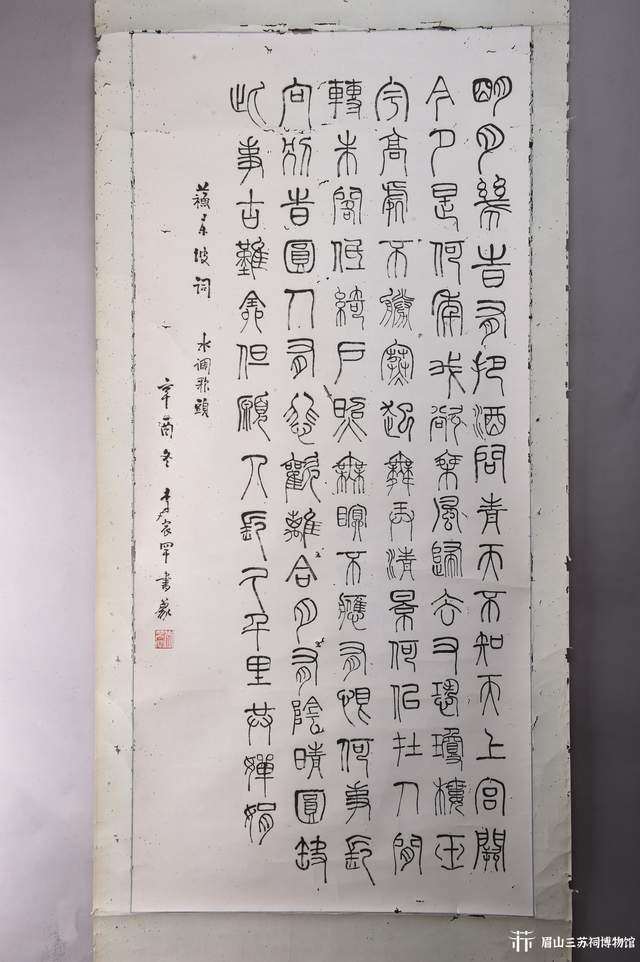 明月幾時有把酒問青天不知天上宮闕
今夕是何年我欲乘風歸去又恐瓊樓玉
宇高處不勝寒起舞弄清景何似在人間
轉朱閣低綺戶照無眠不應有恨何事長
向別時圓人有悲歡離合月有陰晴圓缺
此事古難全但願人長久千里共嬋娟
蘇東坡詞
水調歌頭
辛酉冬 書篆
眉山三苏祠博物馆